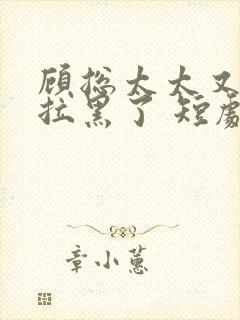 顾总太太又
拉黑了 短剧
章小蕙